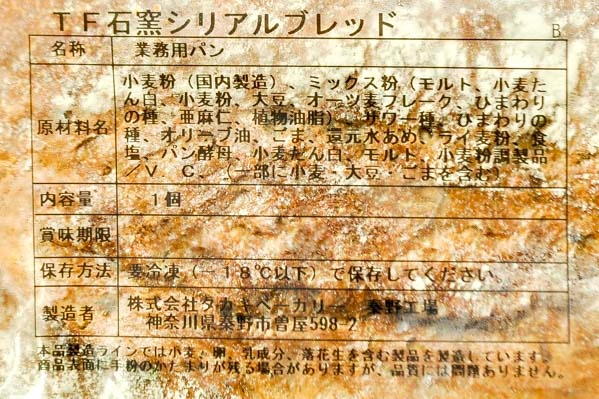 TF石窯シリアルブレッド
B
名称 業務用パン
原材料名 小麦粉（国内製造）、ミックス粉（モルト、小麦た
ん白、小麦粉、大豆、オーツ麦フレーク、ひまわり
の種、亜麻仁、植物油脂）、サワー種、ひまわりの
種、オリーブ油、ごま、還元水あめ、ライ麦粉、食
塩、パン酵母、小麦たん白、モルト、小麦粉調製品
／V．C．（一部に小麦・大豆・ごまを含む）
内容量 1個
賞味期限
保存方法 要冷凍（－18℃以下）で保存してください。
製造者 株式会社タカキベーカリー 秦野工場
神奈川県秦野市曽屋598-2
本品製造ラインでは小麦、卵、乳成分、落花生を含む製品を製造しています。
商品表面に手粉のかたまりが残る場合がありますが、品質には問題ありません。